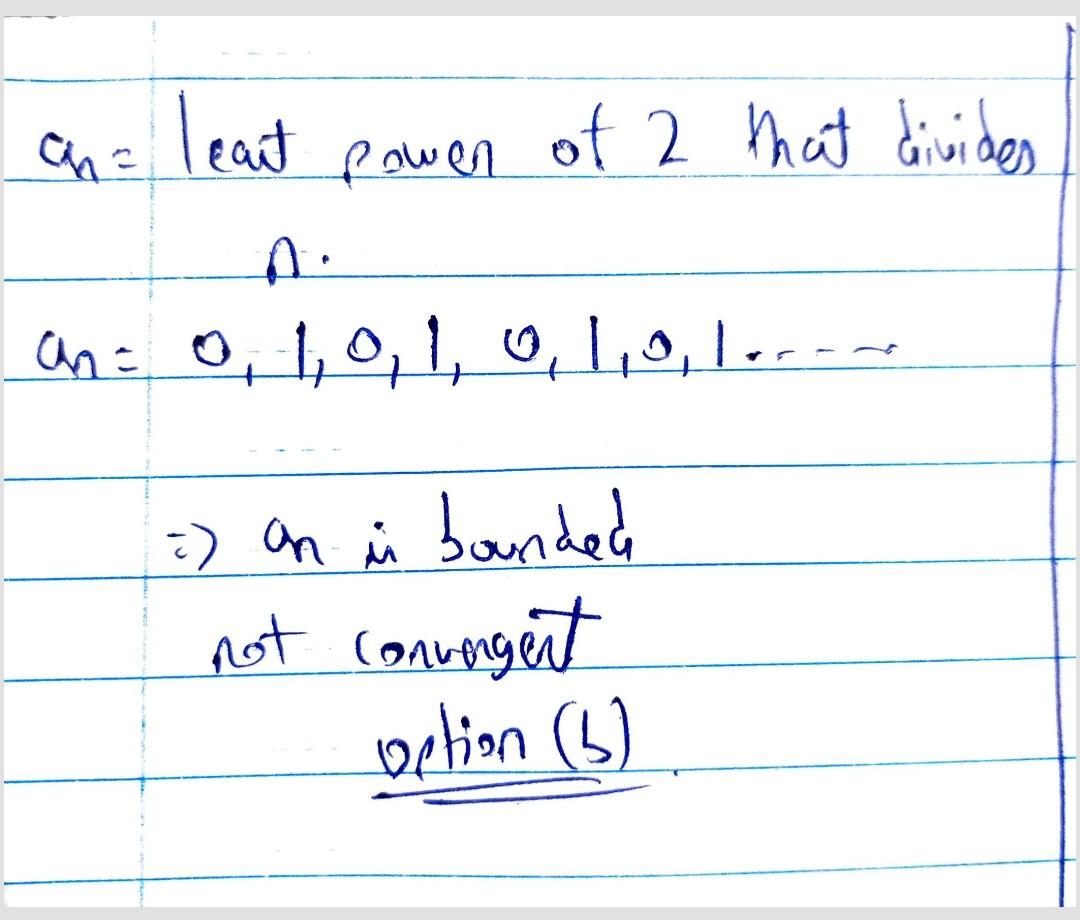 an = least power of 2 that divides
n.
an = 0, 1, 0, 1, 0, 1, 0, 1 .....
=> an is bounded
not convergent
option (b)